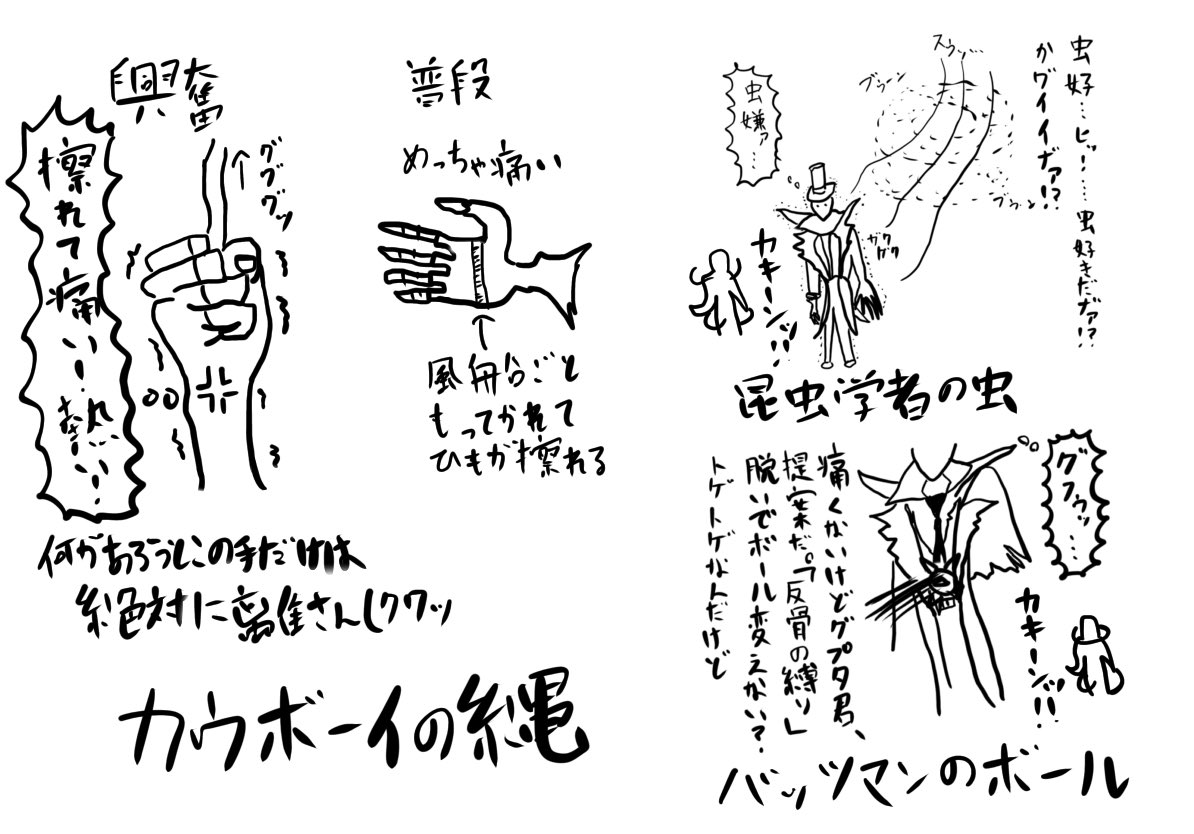 興奮
グググッ
擦れて痛い！熱い！
何があろうとこの手だけは
絶対に離さんしクワッ
普段
めっちゃ痛い
風船ごと
もってかれて
ひもが擦れる
カウボーイの縄
虫好…ヒッ！……虫好きだナァ！？
カワイイナァ！？
スウゥ…
ブウゥン
ブウゥン
虫嫌ァ…
ガクガク
カキーンッ!!
昆虫学者の虫
グフウゥッ…
カキーンッ!!
痛くないけどグプタ君、
提案だ。「反骨の縛り」
脱いでボール変えない？
トゲトゲなんだけど
バッツマンのボール